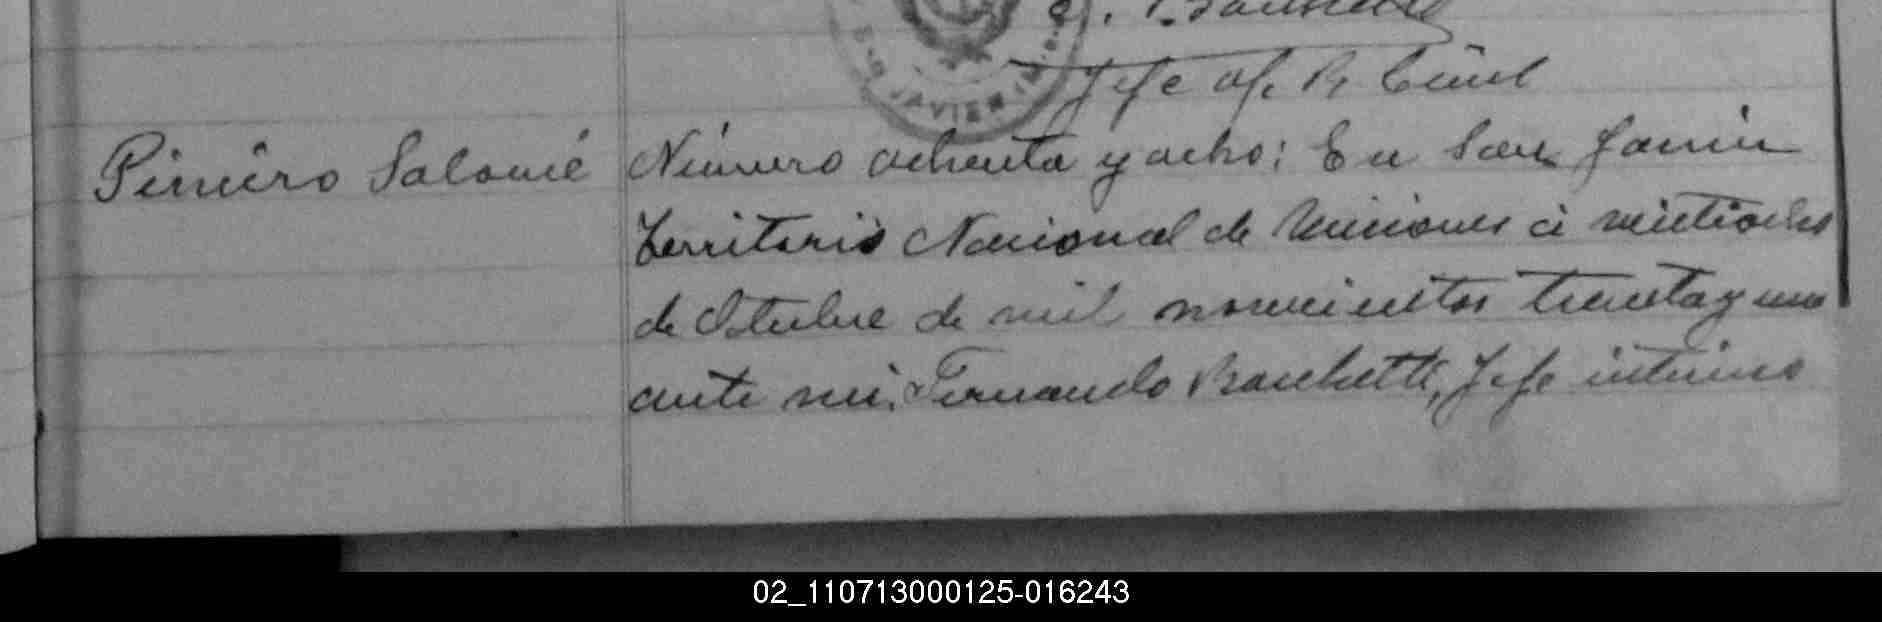 Jefe of. R. Civil
JAVIER (M
Piñeiro Salomé
Número ochenta y ocho: En San Javier
Territorio Nacional de Misiones á veintiocho
de Octubre de mil novecientos treinta y uno
ante mi, Fernando Banchetti, Jefe interino
02_110713000125-016243